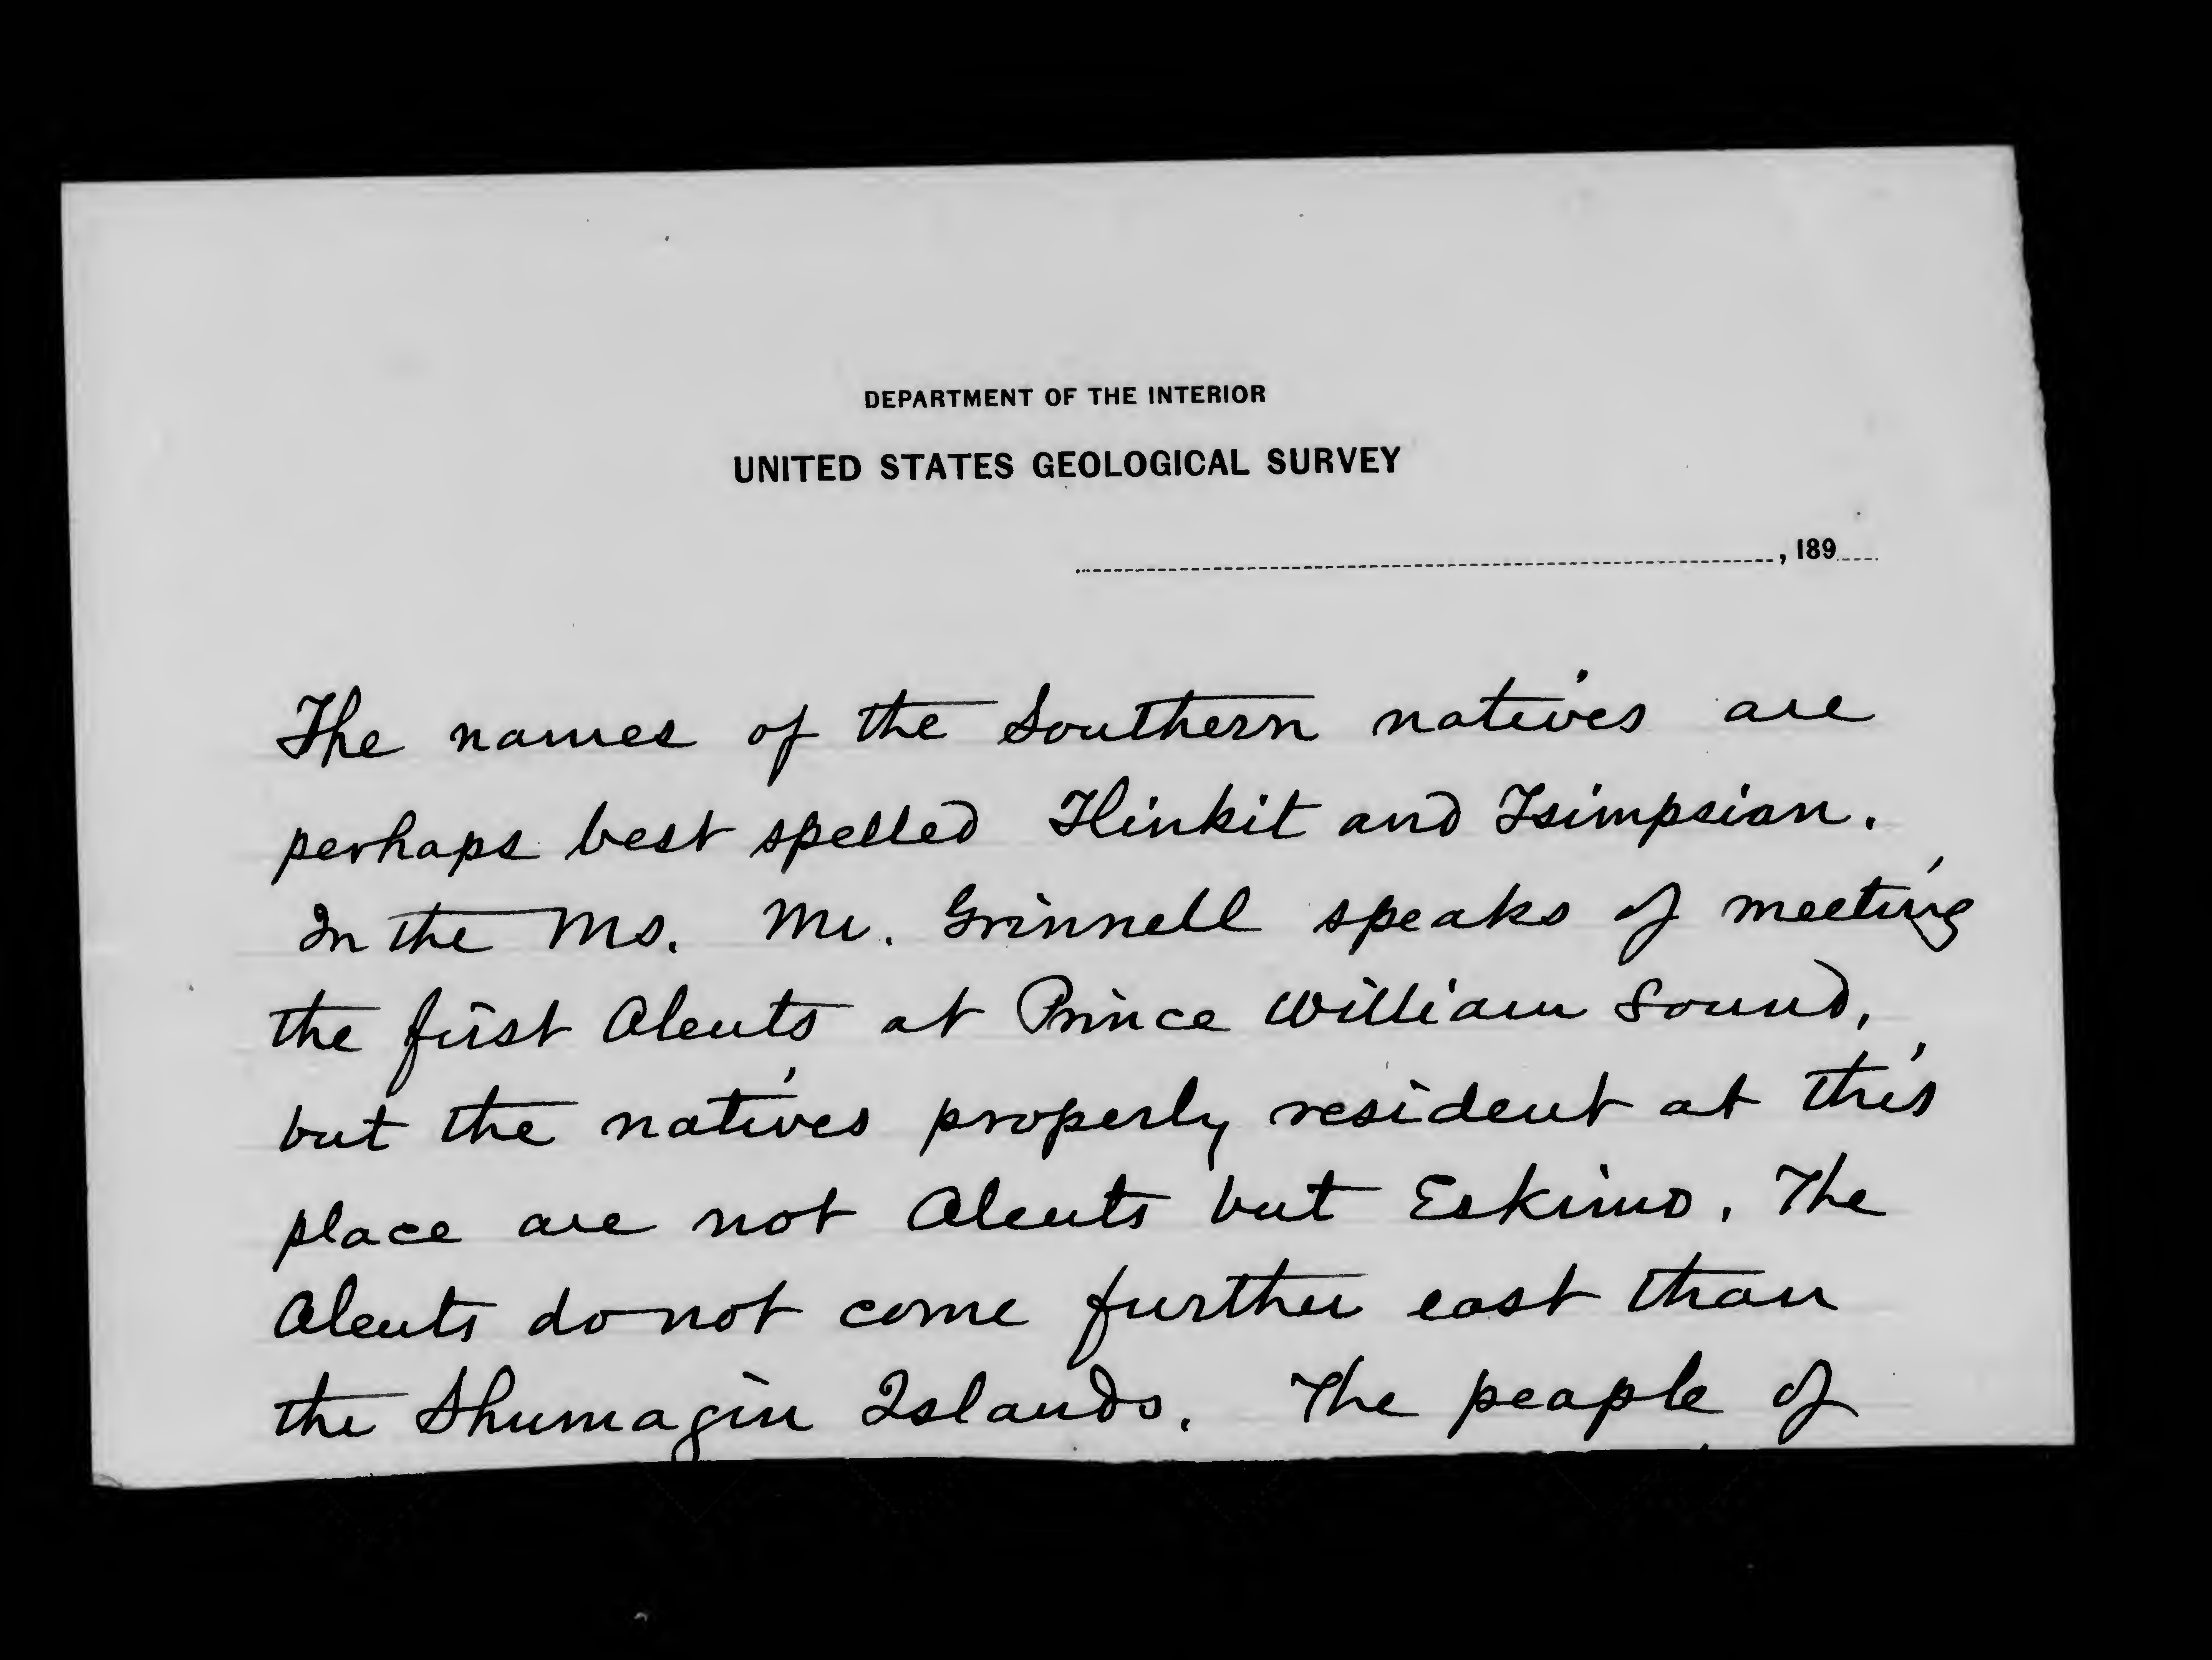 DEPARTMENT OF THE INTERIOR
UNITED STATES GEOLOGICAL SURVEY
, 189
The names of the Southern natives are
perhaps best spelled Tlinkit and Tsimpsian.
In the Ms. Mr. Grinnell speaks of meeting
the first Aleuts at Prince William Sound,
but the natives properly resident at this
place are not Aleuts but Eskimo. The
Aleuts do not come further east than
the Shumagin Islands. The people of